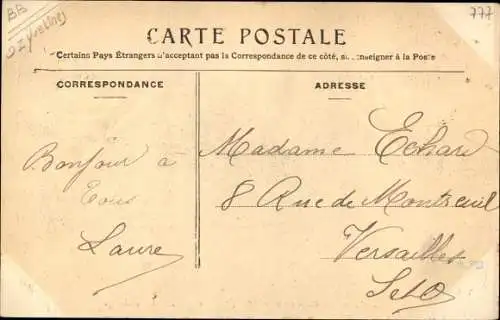 BB
777
CARTE POSTALE
Certains Pays Étrangers n'acceptant pas la Correspondance de ce côté, se renseigner à la Poste
CORRESPONDANCE
ADRESSE
Bonjour à
Tous
Laure
Madame Echard
8 Rue de Montreuil
Versailles
S et O